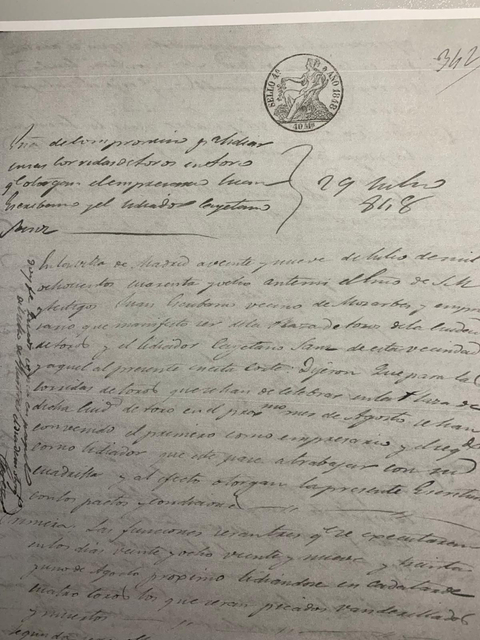 342
SELLO 4º AÑO 1848
40 Ms
Esca de compromiso pª lidiar
en las corridas de toros en Toro
qe otorgan el empresario Juan
Escribano y el lidiador Cayetano
Sanz
29 Julio
848
En la villa de Madrid a veinte y nueve de Julio de mil
ochocientos cuarenta y ocho ante mi el Esno de S.M.
y testigos Juan Escribano vecino de y empre
sario que manifiesta ser de la Plaza de toros de la Ciudad
de Toro y el lidiador Cayetano Sanz de esta vecindad
y aquel al presente en esta Corte: Dijeron Que para las
corridas de toros que se han de celebrar en la Plaza de
dicha Ciud de Toro en el proximo mes de Agosto se han
convenido el primero como empresario y el segdo
como lidiador que pase a trabajar con su
cuadrilla y al efecto otorgan la presente Escritura
con los pactos y condiciones
Primera. Las funciones seran tres qe se executaran
en los dias veinte y ocho veinte y nueve y treinta
y uno de Agosto proximo lidiandose en cada tarde
cuatro toros los que seran picados vanderillados
y muertos
Segunda